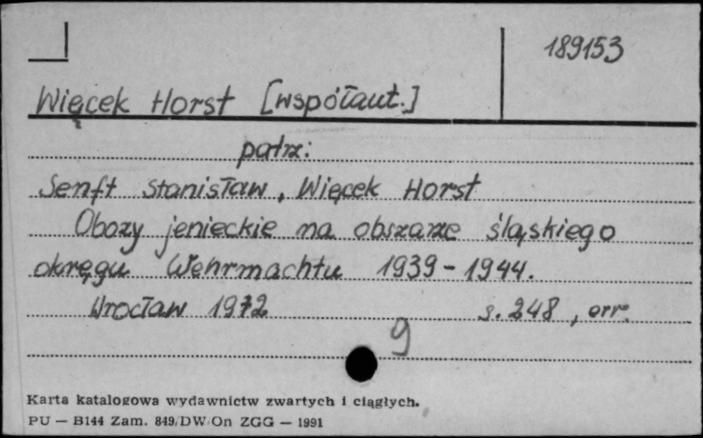 189153
Więcek Horst [współaut.]
patrz:
Senft Stanisław, Więcek Horst
Obozy jenieckie na obszarze śląskiego
okręgu Wehrmachtu 1939-1944.
Wrocław 1972 s. 248, err.
9
Karta katalogowa wydawnictw zwartych i ciągłych.
PU — B144 Zam. 849/DW/On ZGG — 1991